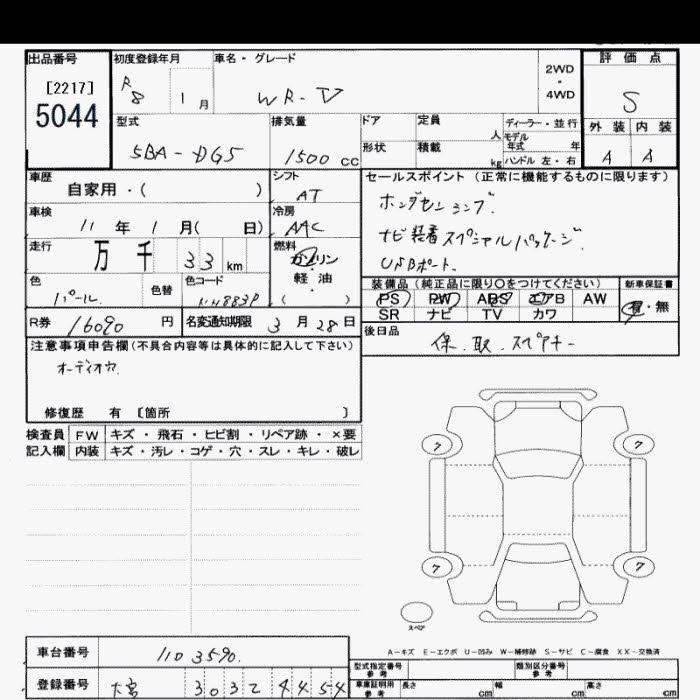 出品番号 初度登録年月 車名・グレード 評価点
[2217] R8 1月 WR-V 2WD・4WD S
5044
型式 排気量 ドア 定員 人 ディーラー・並行 外装 内装
5BA-DG5 1500cc 形状 積載 kg モデル年式 年 A A
ハンドル 左・右
車歴 シフト セールスポイント(正常に機能するものに限ります)
自家用・( ) AT ホンダセンシング.
車検 冷房 ナビ装着スペシャルパッケージ.
11年 1月( 日) AAC USBポート.
走行 燃料
万 千 33km ガソリン・軽油( )
色 色替 色コード 装備品(純正品に限り○をつけてください) 新車保証書
パール. NH883P PS PW ABS エアB AW 有・無
SR ナビ TV カワ
R券 16090円 名変通知期限 3月28日 後日品
保.取.スペアキー
注意事項申告欄(不具合内容等は具体的に記入して下さい)
オーディオレス
修復歴 有 [箇所 ]
検査員 FW キズ・飛石・ヒビ割・リペア跡・×要
記入欄 内装 キズ・汚レ・コゲ・穴・スレ・キレ・破レ
7 7
7 7
スペア
A-キズ E-エクボ U-凹み W-補修跡 S-サビ C-腐食 XX-交換済
車台番号 1103590. 型式指定番号 参考 類別区分番号 参考
登録番号 大宮 303 ス 4454 車庫証明用 参考 長さ cm 幅 cm 高さ cm